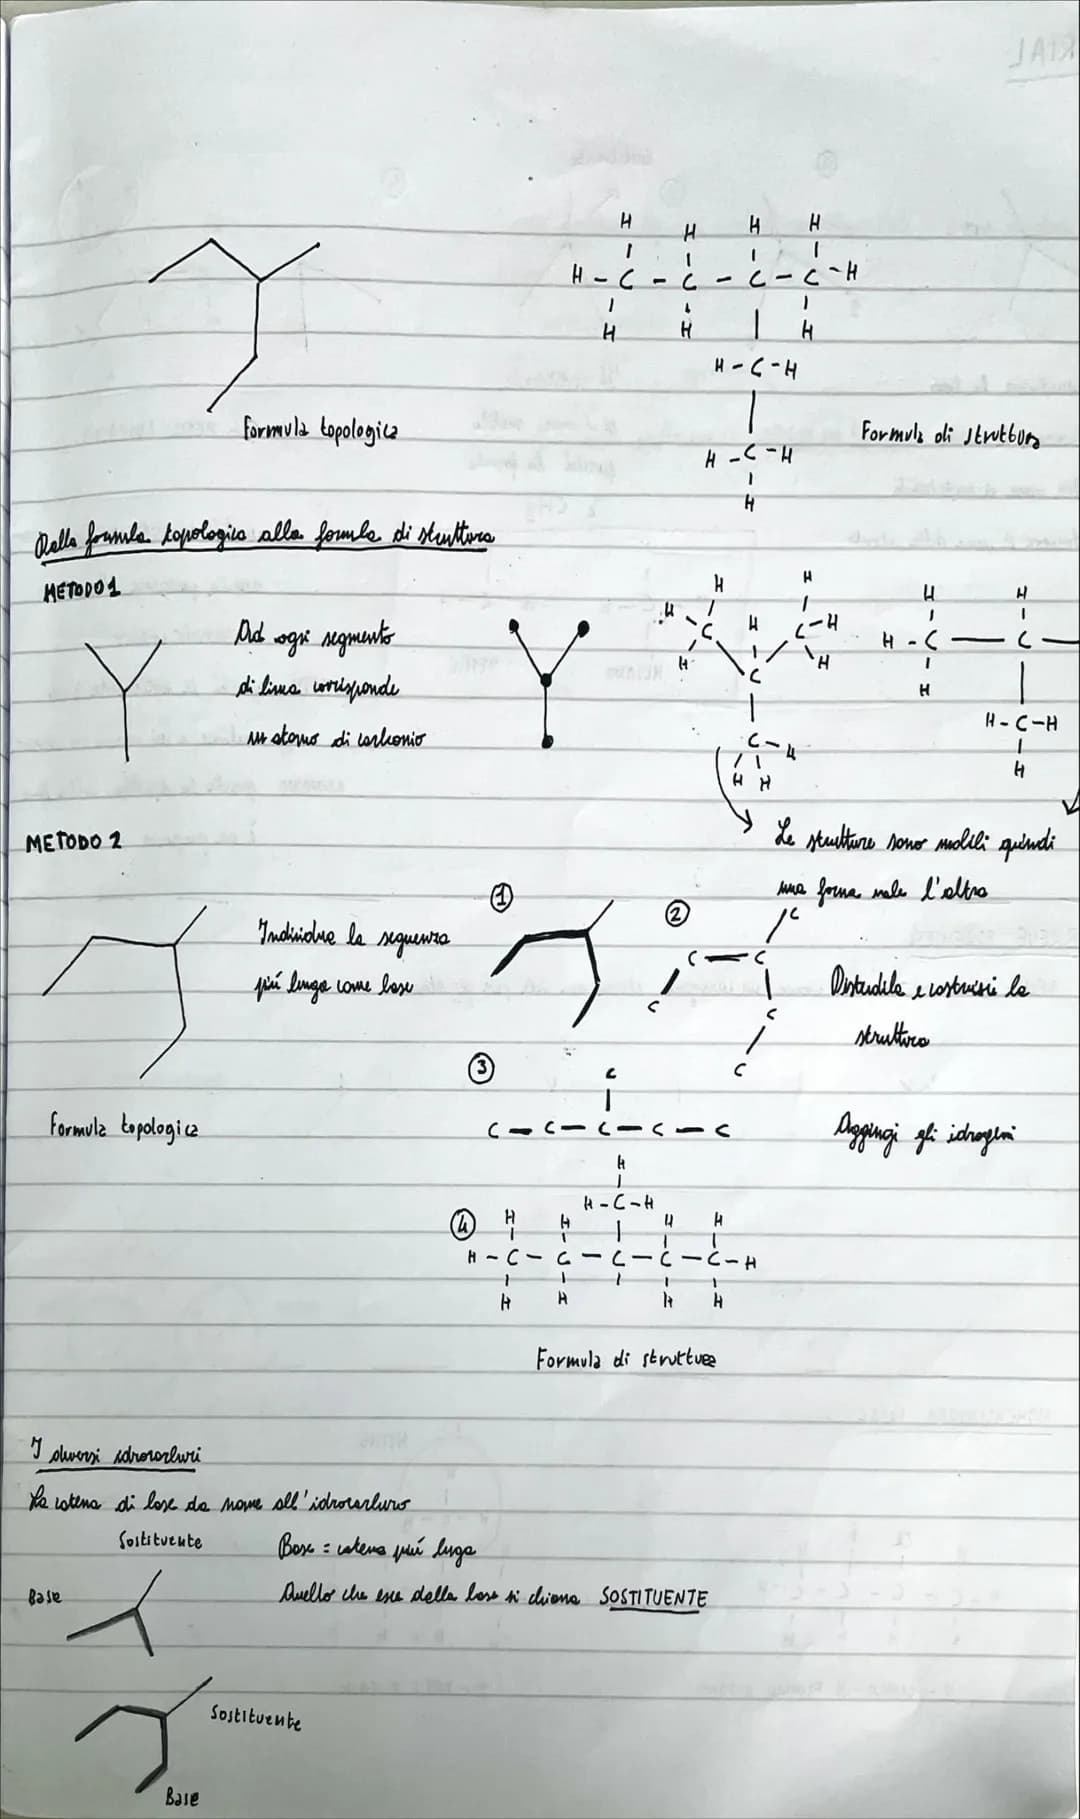 H H H H
H - C - C - C - C - H
H H H
H - C - H
H - C - H
H
Formula topologica
Formula di struttura
Dalla formula topologica alla formula di struttura
METODO 1
Ad ogni segmento
di linea corrisponde
un atomo di carbonio
H H H H
H C H C - H H - C — C —
H C H H
C - H H - C - H
H H H
Le strutture sono mobili quindi
una forma vale l'altra
METODO 2
Individua la sequenza
più lunga come base
1
2
C
C — C
C C
C
Distendila e costruisci la
struttura
Formula topologica
3
C
C — C — C — C — C
Aggiungi gli idrogeni
4
H
H - C - H
H H H H
H - C - C - C - C - C - H
H H H H
Formula di struttura
I diversi idrocarburi
La catena di base da nome all'idrocarburo
Sostituente
Base = catena più luga
Base
Quello che esce della base si chiama SOSTITUENTE
Sostituente
Base